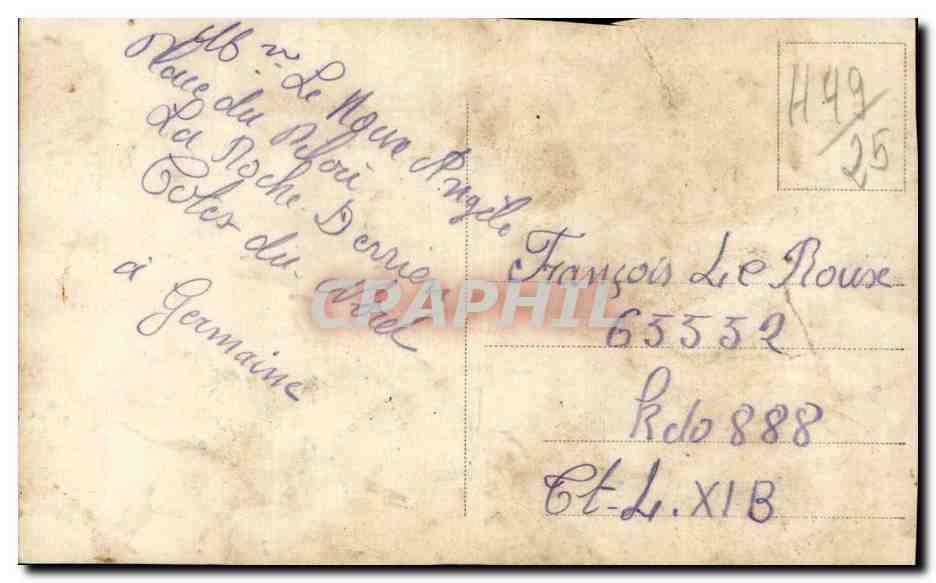 Mr Le Nouve Angèle
Place du
La Roche Derrien
Cotes du Nord
à Germaine
H 49/25
François Le Roux
65552
Kdo 888
Ct-L. XIB
CRAPHIL